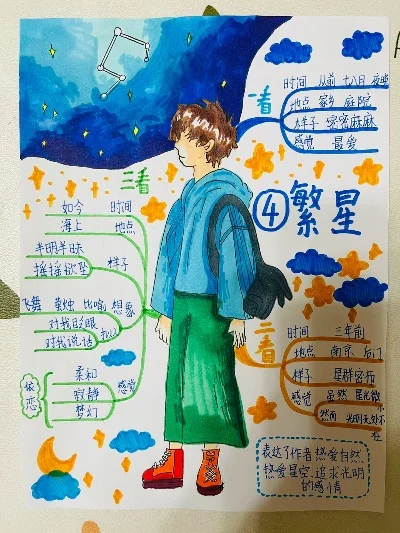 ④繁星
一看
时间 从前 七八月 夜晚
地点 家乡 庭院
样子 密密麻麻
感觉 最爱
二看
时间 三年前
地点 南京 后门
样子 星群密布
感觉 虽然 星光微小
然而 光明无处不在
三看
如今 时间
海上 地点
半明半昧
摇摇欲坠 样子
飞舞 萤火虫 比喻 想象
对我眨眼
对我说话 拟人
柔和
寂静 感觉
梦幻
依恋
表达了作者热爱自然
热爱星空、追求光明
的感情